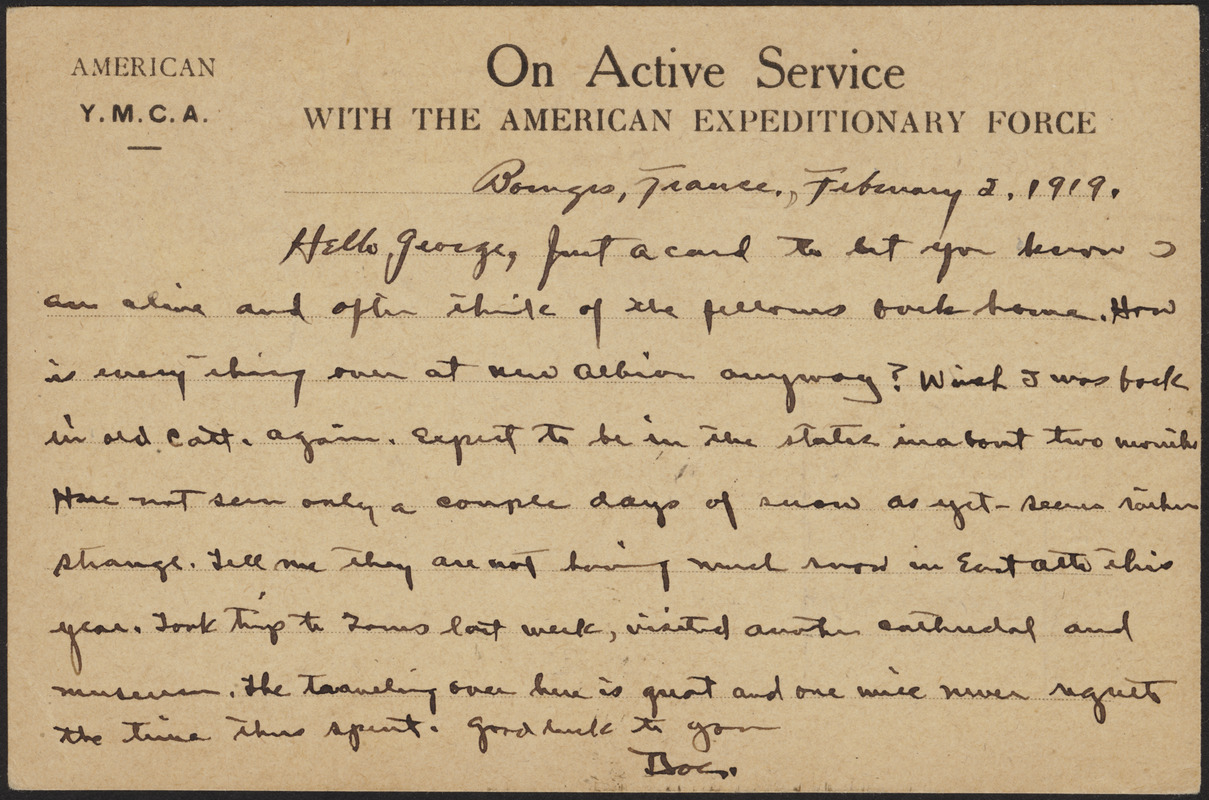 AMERICAN
Y. M. C. A.
On Active Service
WITH THE AMERICAN EXPEDITIONARY FORCE
Bourges, France., February 2, 1919.
Hello George, Just a card to let you know I
am alive and often think of the fellows back home. How
is every thing over at new Albion anyway? Wish I was back
in old Catt. again. Expect to be in the states in about two months
Have not seen only a couple days of snow as yet - seems rather
strange. Tell me they are not having much snow in East this
year. Took trip to Tours last week, visited another cathedral and
museum. The traveling over here is great and one will never regret
the time thus spent. Good luck to you
Doc.